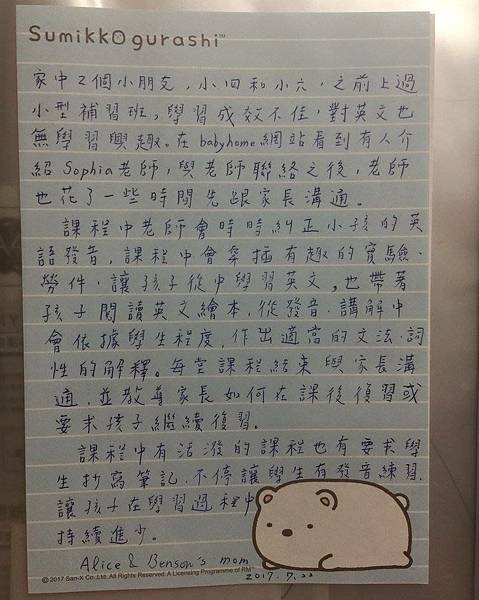 Sumikkogurashi™
家中2個小朋友，小四和小六，之前上過
小型補習班，學習成效不佳，對英文也
無學習興趣。在babyhome網站看到有人介
紹 Sophia老師，與老師聯絡之後，老師
也花了一些時間先跟家長溝通。
課程中老師會時時糾正小孩的英
語發音，課程中會穿插有趣的實驗、
勞作，讓孩子從中學習英文，也帶著
孩子閱讀英文繪本，從發音、講解中
會依據學生程度，作出適當的文法、詞
性的解釋。每堂課程結束與家長溝
通，並教導家長如何在課後復習或
要求孩子繼續復習。
課程中有活潑的課程也有要求學
生抄寫筆記，不停讓學生有發音練習，
讓孩子在學習過程中
持續進步。
Alice & Benson's mom
2017.7.22
© 2017 San-X Co.,Ltd. All Rights Reserved. A Licensing Programme of RM